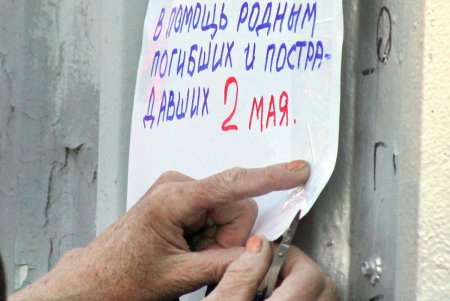 В ПОМОЩЬ РОДНЫМ
ПОГИБШИХ И ПОСТРА-
ДАВШИХ 2 МАЯ.